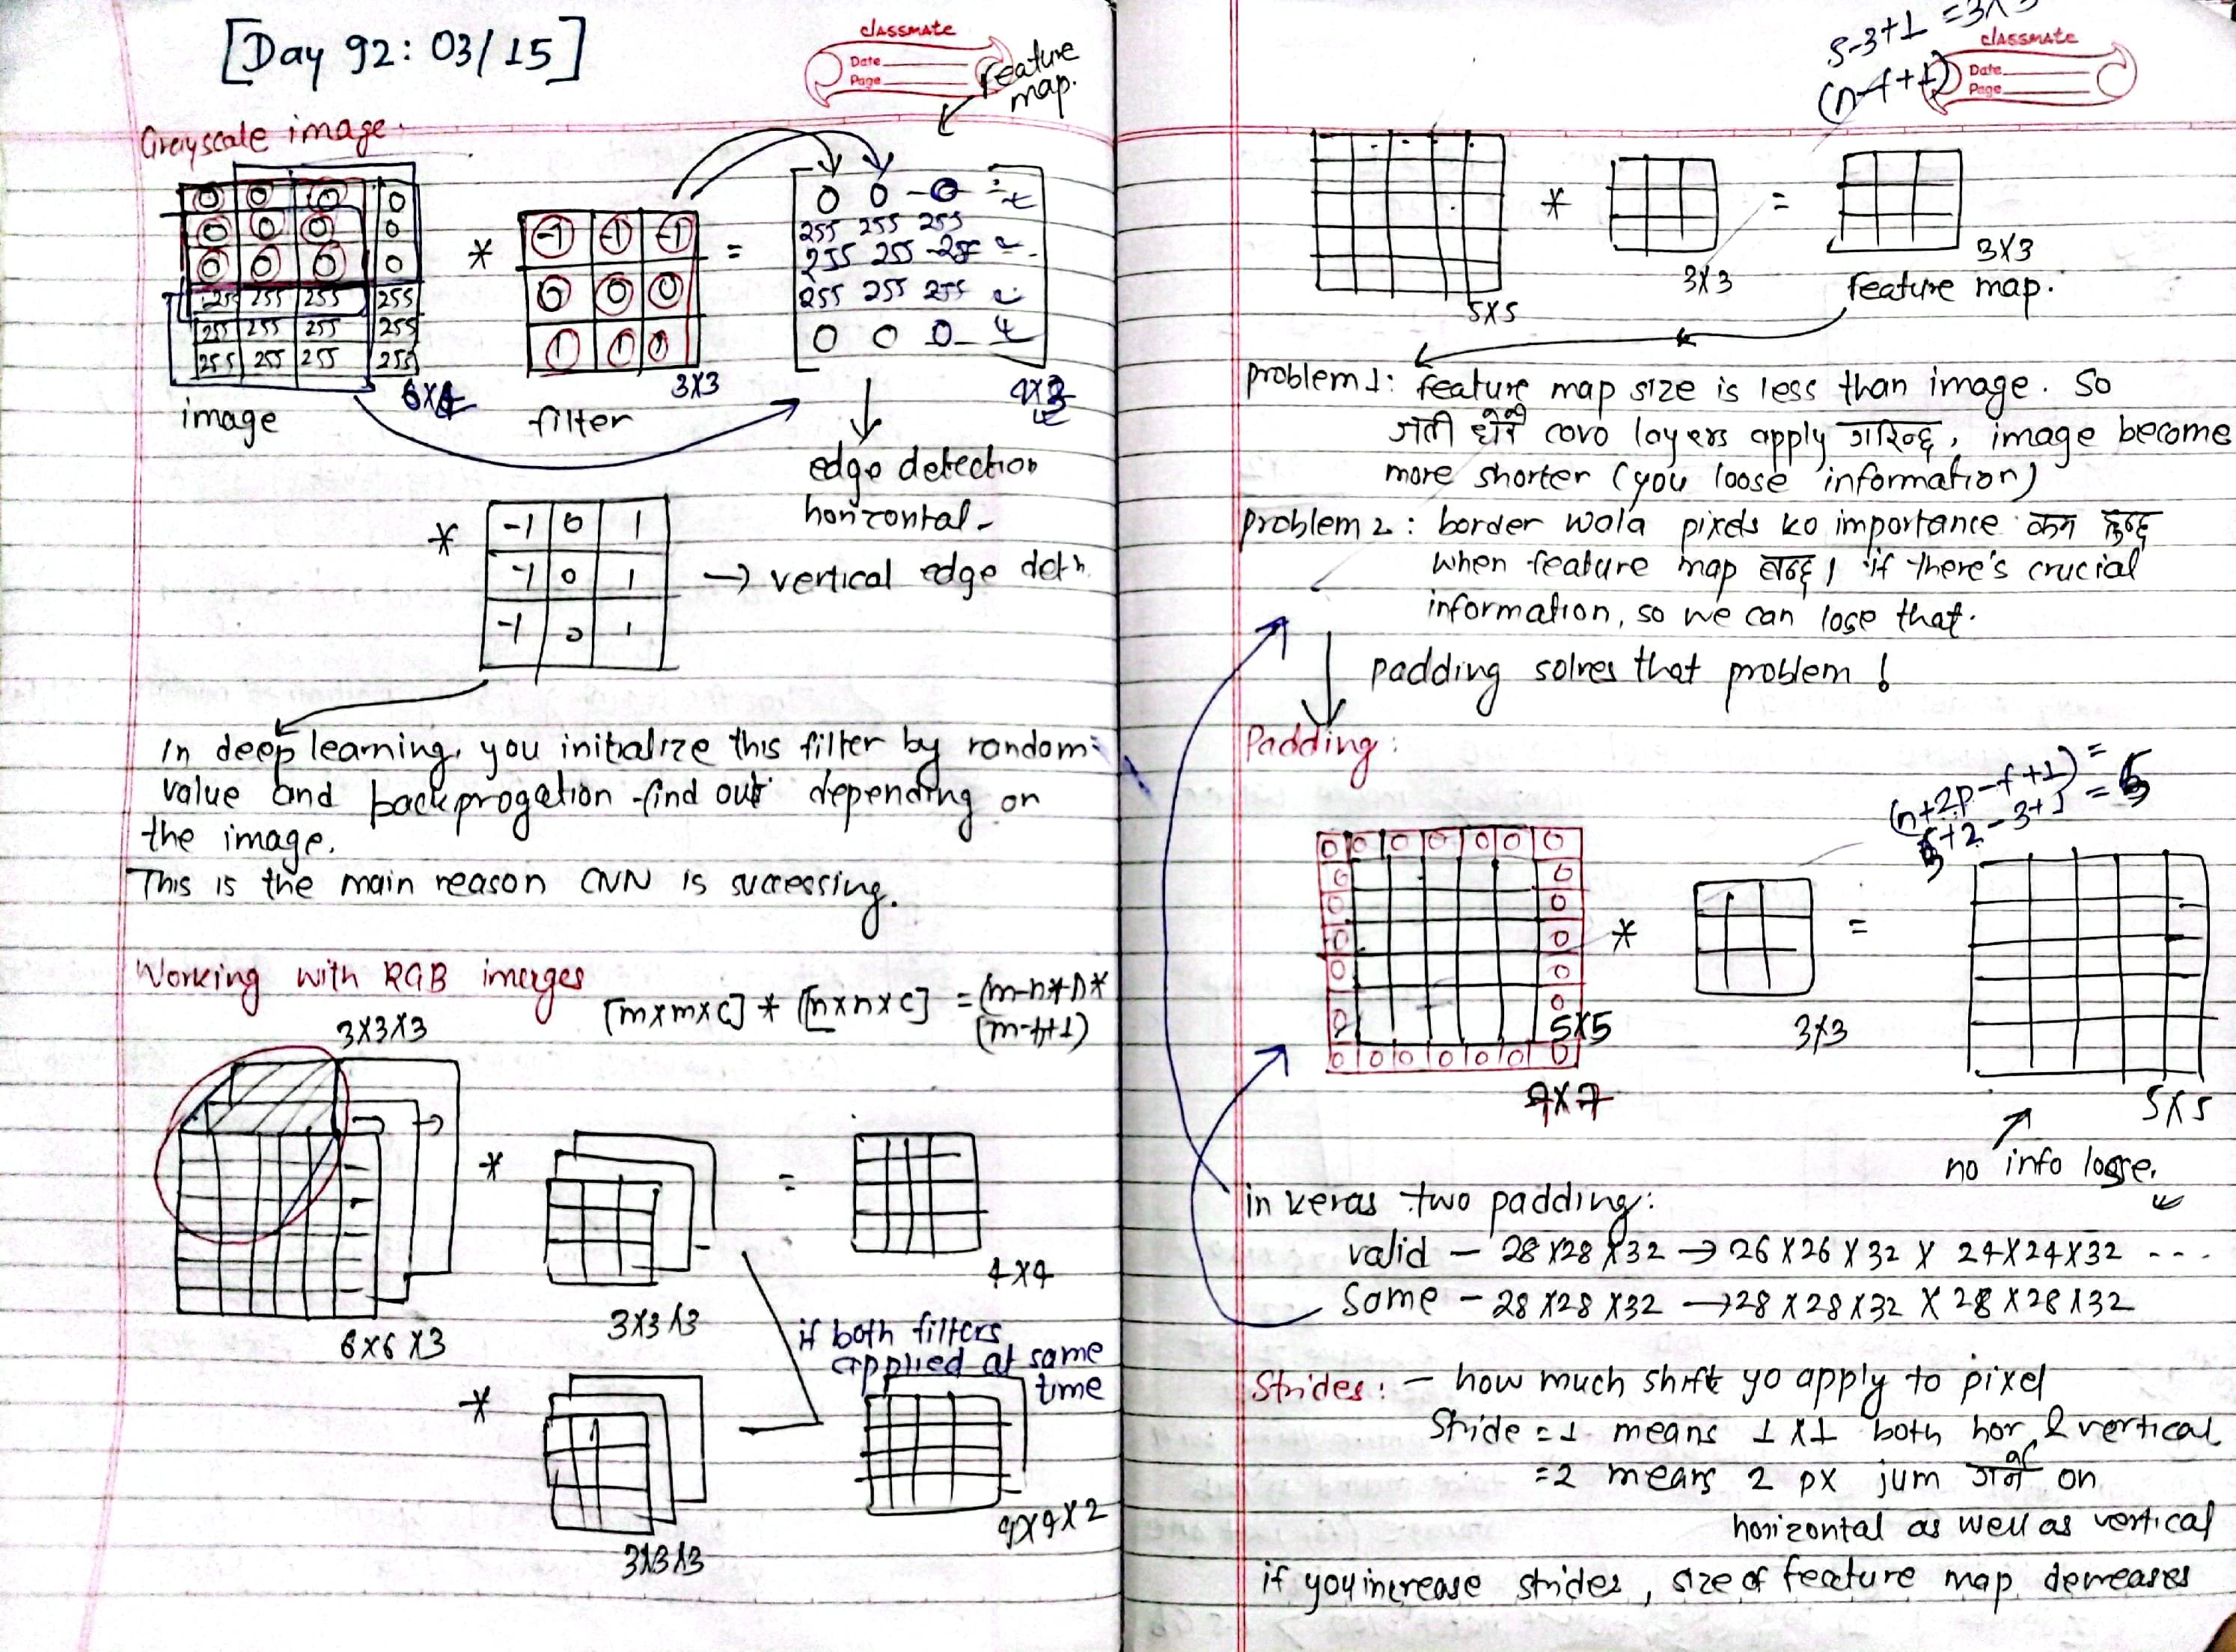 [Day 92: 03/15]
classmate
Date
Page
feature
map.
Greyscale image.
0 0 0 0
0 0 0 0
0 0 0 0
255 255 255 255
255 255 255 255
255 255 255 255
image
*
-1 -1 -1
0 0 0
1 1 0
3x3
filter
=
0 0 0
255 255 255
255 255 255
255 255 255
0 0 0
edge detection
horizontal
*
-1 0 1
-1 0 1
-1 0 1
→ vertical edge detn.
In deep learning, you initialize this filter by random
value and backprogation find out depending on
the image.
This is the main reason CNN is successing.
Working with RGB images
[m x m x c] * [n x n x c] =
3x3x3
6x6x3
*
3x3x3
=
4x4
if both filters
applied at same
time
*
3x3x3
4x4x2
5-3+1 = 3x3
(n-f+1)
classmate
Date
Page
5x5
*
3x3
=
3x3
feature map.
problem 1: feature map size is less than image. So
जती धेरै covo layers apply गरिन्छ, image become
more shorter (you loose information)
problem 2: border wala pixels ko importance कम हुन्छ
when feature map बन्छ। if there's crucial
information, so we can lose that.
padding solves that problem!
Padding:
(n+2p-f+1) =
5+2-3+1 = 5
0 0 0 0 0 0 0
0 0
0 0
0 0
0 0
0 0
0 0 0 0 0 0 0
5x5
7x7
*
3x3
=
5x5
no info losse.
in keras two padding:
valid - 28x28x32 → 26x26x32 x 24x24x32 ---
Same - 28x28x32 → 28x28x32 x 28x28x32
Strides: - how much shift yo apply to pixel
Stride =1 means 1x1 both hor & vertical
=2 means 2 px jum गर्ने on
horizontal as well as vertical
if you increase strides, size of feature map decreases